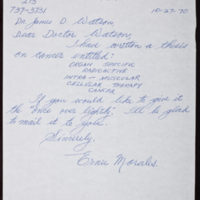 213
737-3731 10-27-90
Dr. James D. Watson,
Dear Doctor Watson,
I had written a thesis
on cancer entitled:
ORGAN SPECIFIC
RADIOACTIVE
INTRA-MOLECULAR
CELLULAR THERAPY
CANCER
If you would like to give it
the once over lightly I'll be glad
to mail it to you.
Sincerely,
Ernie Morales